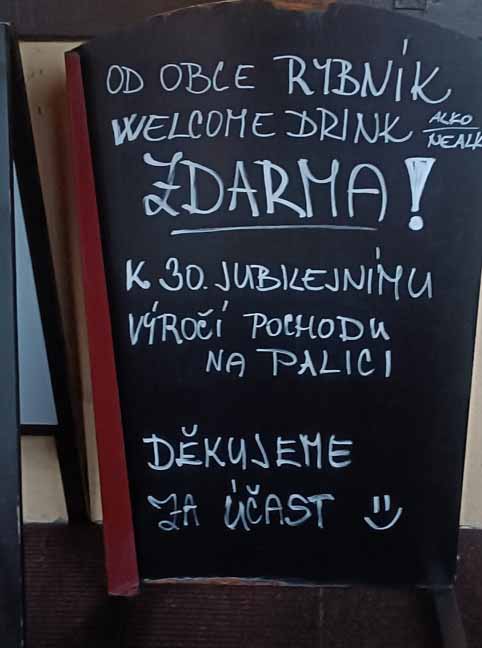 OD OBCE RYBNÍK
WELCOME DRINK ALKO
NEALK
ZDARMA!
K 30. JUBILEJNÍMU
VÝROČÍ POCHODU
NA PALICI
DĚKUJEME
ZA ÚČAST